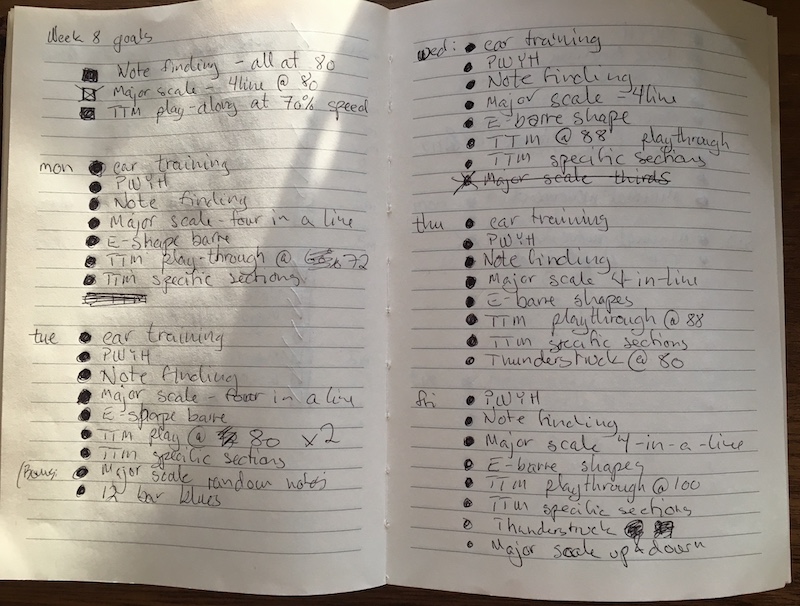 Week 8 goals
Note finding - all at 80
Major scale - 4line @ 80
TTM play-along at 70% speed
mon
ear training
PWYH
Note finding
Major scale - four in a line
E-shape barre
TTM play-through @ 72
TTM specific sections
tue
ear training
PWYH
Note finding
Major scale - four in a line
E-shape barre
TTM play @ 80 x2
TTM specific sections
(Bonus: Major scale random notes
12 bar blues
wed: ear training
PWYH
Note finding
Major scale - 4line
E-barre shape
TTM @ 88 playthrough
TTM specific sections
Major scale thirds
thu ear training
PWYH
Note finding
Major scale 4-in-line
E-barre shapes
TTM playthrough @ 88
TTM specific sections
Thunderstruck @ 80
fri PWYH
Note finding
Major scale 4-in-a-line
E-barre shapes
TTM playthrough @ 100
TTM specific sections
Thunderstruck
Major scale up & down